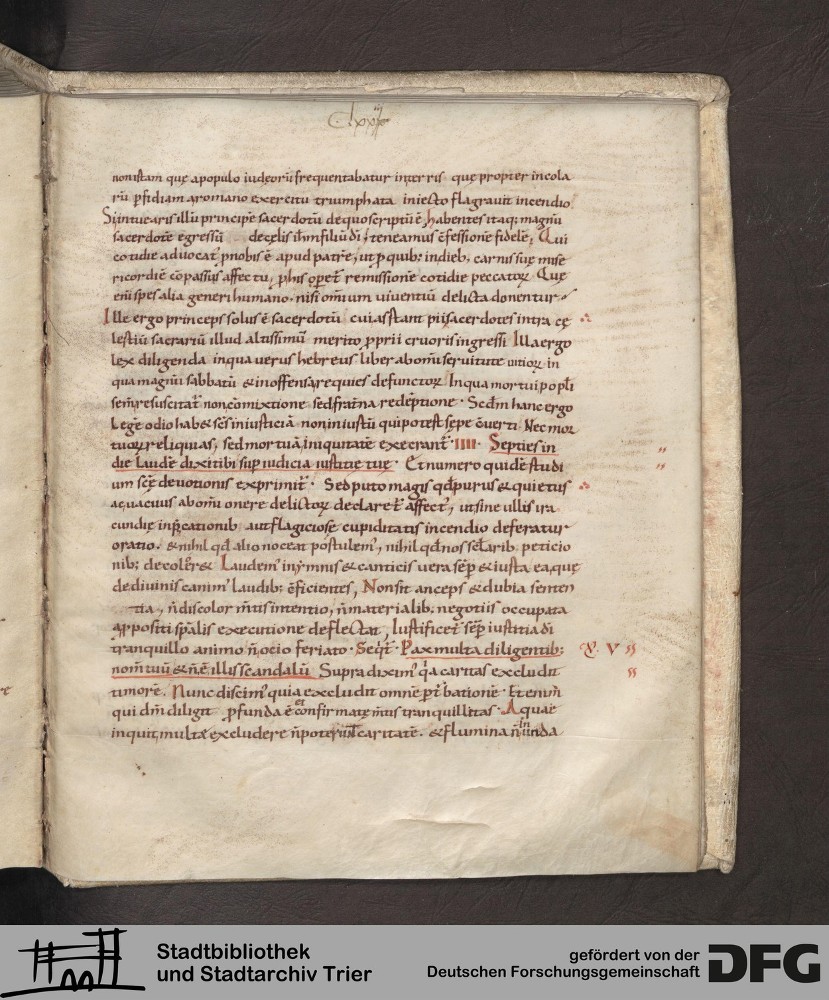 Clxxiij
non istam quę apopulo iudęorū frequentabatur interris quę propter incola
rū ꝑfidiam aromano exercitu triumphata iniecto flagrauit incendio
Si intuearis illū principē sacerdotū dequo scriptū ē habentes itaq; magnū
sacerdotē egressū decęlis ihm filiū di, teneamus ɔfessionē fidelē; Qui
cotidie aduocat' pnobis ē apud patrē, ut p quib; indieb; carnis suę mise
ricordię cōpassus affectu, phis oꝑet' remissionē cotidie peccatoꝝ Quę
eni spes alia generi humano nisi omium uiuentiū delicta donentur
Ille ergo princeps solus ē sacerdotū cui asstant pii sacerdotes intra cę
lestiū sacrariū illud altissimū merito pprii cruoris ingressi Illa ergo
lex diligenda inqua uerus hebreus liber abomi seruitute uitioꝝ in
qua magnū sabbatū & inoffensa requies defunctoꝝ Inqua mortui popli
semē resuscitat' non cōmixtione sed frat̄na redēptione · Scdm hanc ergo
Legē odio hab& scs iniusticiā non iniustū qui potest sępe ɔuerti Nec mor
tuoꝝ reliquias, sed mortuā, iniquitatē execrant' IIII· Septies in
die Laudē dixi tibi sup iudicia iustitię tuę · Et numero quidē studi
um scę deuotionis exprimit' · Sed puto magis qd purus & quietus
ac uacuus abomi onere delictoꝝ declaret' affect', ut sine ullis ira
cundię inpcationib; aut flagiciosę cupiditatis incendio deferatur
oratio. & nihil qd alio noceat postulem', nihil qd nos scelarib; peticio
nib; decolor& Laudem' in ymnis & canticis uera semp & iusta ea, quę
dedivinis canim' laudib; ɔficientes, Non sit anceps & dubia senten
tia, n discolor mtis intentio, n materialib; negotiis occupata
appositi spalis executione deflectat, Iustificet semp iustitia di
tranquillo animo n ocio feriato · Seqt' · Pax multa diligentib;
nom tuū & n ē illis scandalū Supra dixim' qa caritas excludit
timorē. Nunc discim' quia excludit omnē ptbationē · Etenim
qui dm diligit pfunda ē et confirmatę mtis tranquillitas · Aquae
inquit, multae excludere n poterunt caritatē. & flumina n inunda
Stadtbibliothek
und Stadtarchiv Trier
gefördert von der
Deutschen Forschungsgemeinschaft
DFG